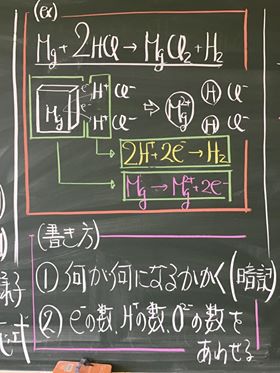 (ex)
Mg + 2HCl → MgCl₂ + H₂
Mg e⁻ H⁺ Cl⁻ ⇨ Mg²⁺ H Cl⁻
e⁻ H⁺ Cl⁻ H Cl⁻
2H⁺ + 2e⁻ → H₂
Mg → Mg²⁺ + 2e⁻
(書き方)
① 何が何になるかかく(暗記)
② e⁻の数、H⁺の数、O²⁻の数を
あわせる